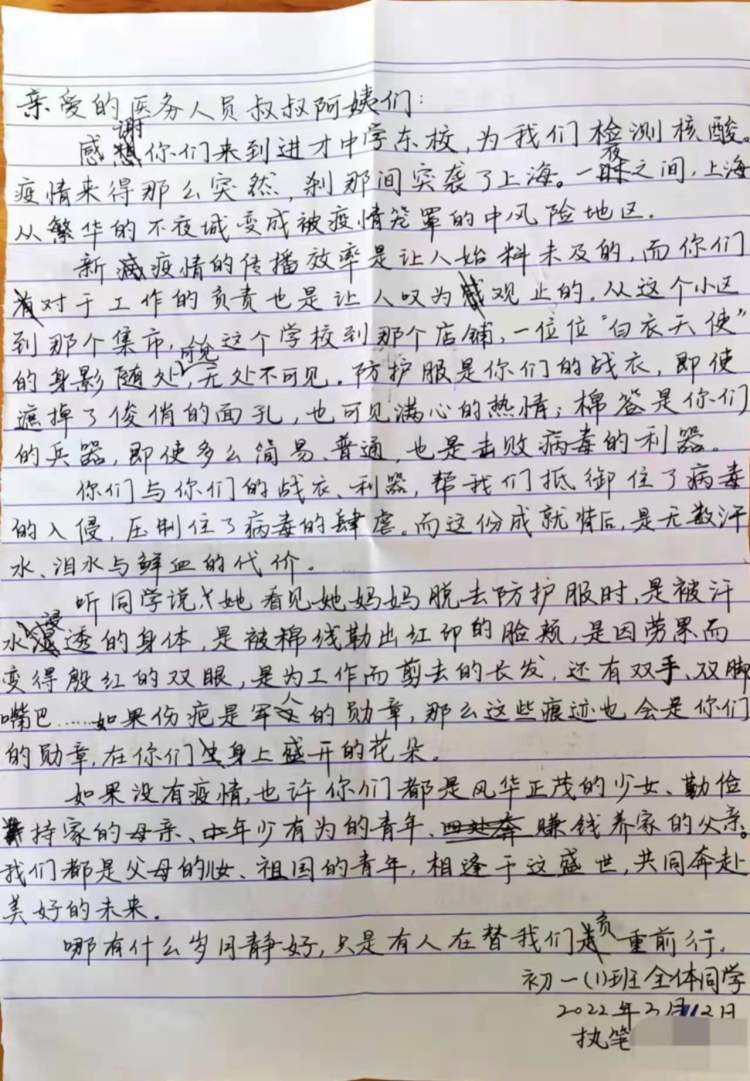 亲爱的医务人员叔叔阿姨们：
感谢你们来到进才中学东校，为我们检测核酸。
疫情来得那么突然，刹那间突袭了上海。一夜之间，上海
从繁华的不夜城变成被疫情笼罩的中风险地区．
新冠疫情的传播效率是让人始料未及的，而你们
对于工作的负责也是让人叹为观止的．从这个小区
到那个集市，这个学校到那个店铺，一位位“白衣天使”
的身影随处可见，无处不可见．防护服是你们的战衣，即使
遮掉了俊俏的面孔，也可见满心的热情；棉签是你们
的兵器，即使多么简易、普通，也是击败病毒的利器。
你们与你们的战衣、利器，帮我们抵御住了病毒
的入侵，压制住了病毒的肆虐．而这份成就背后，是无数汗
水、泪水与鲜血的代价．
听同学说，她看见她妈妈脱去防护服时，是被汗
水浸透的身体，是被棉线勒出红印的脸颊，是因劳累而
变得殷红的双眼，是为工作而剪去的长发，还有双手、双脚
嘴巴……如果伤疤是军人的勋章，那么这些痕迹也会是你们
的勋章，在你们身上盛开的花朵。
如果没有疫情，也许你们都是风华正茂的少女、勤俭
持家的母亲、年少有为的青年、赚钱养家的父亲。
我们都是父母的儿女、祖国的青年，相逢于这盛世，共同奔赴
美好的未来．
哪有什么岁月静好，只是有人在替我们负重前行．
初一(1)班全体同学
2022年3月12日
执笔